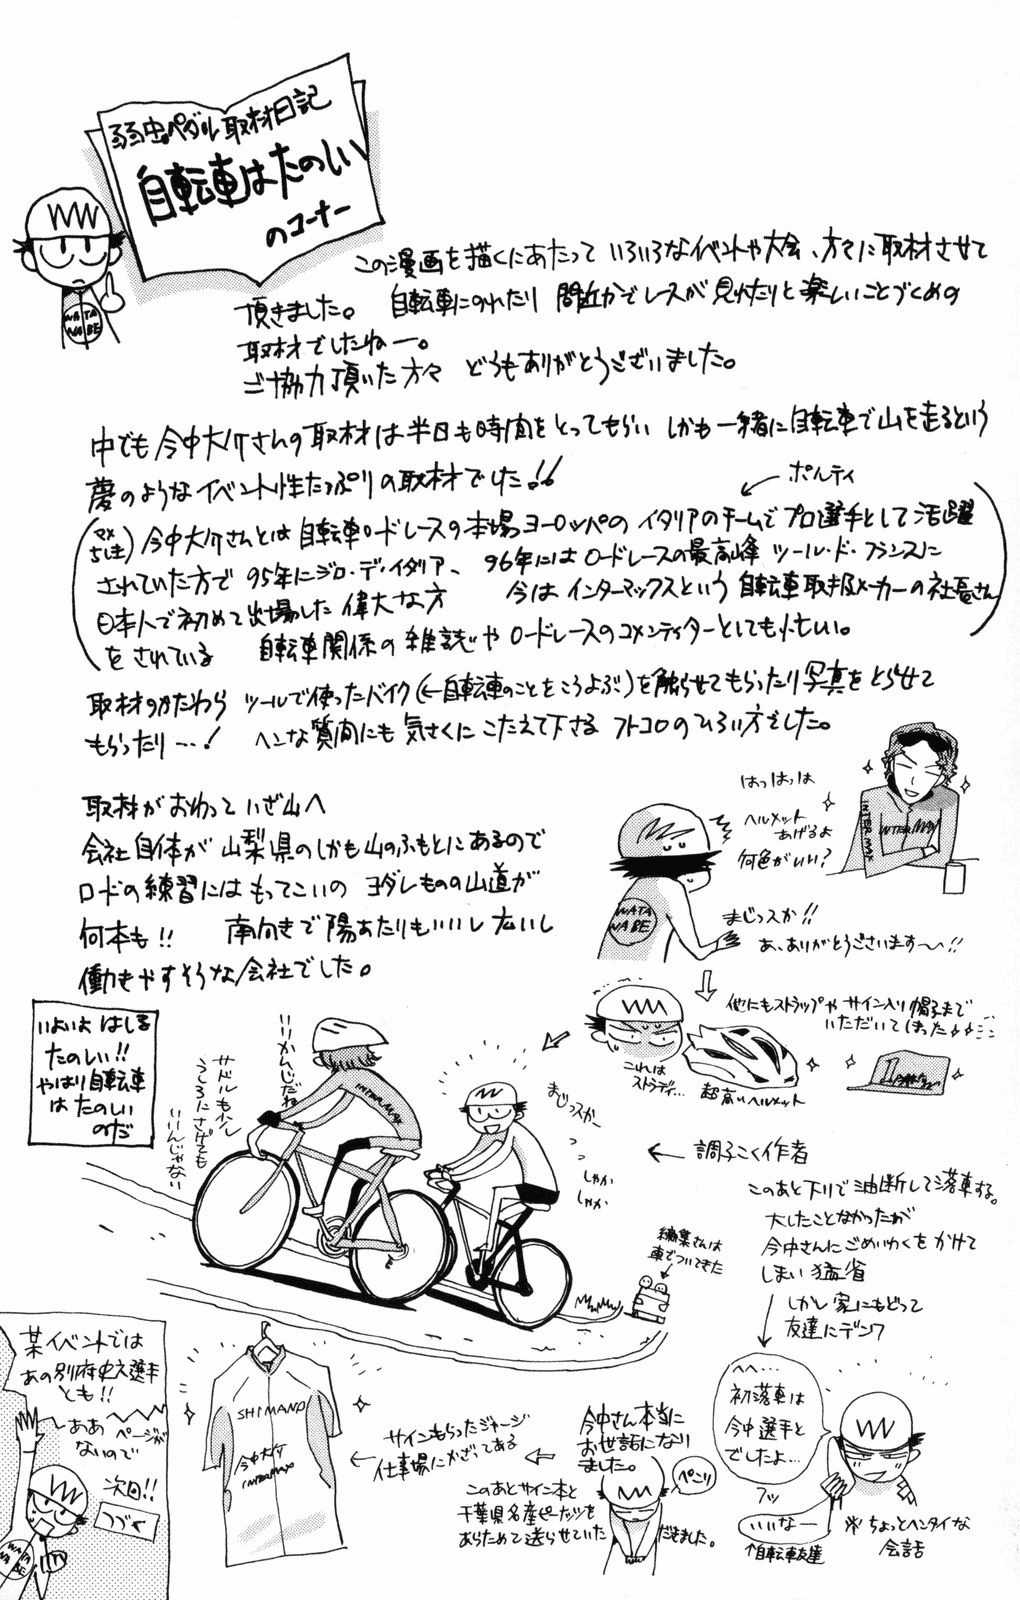 弱虫ペダル取材日記
自転車はたのしい
のコーナー
WATA
NABE
この漫画を描くにあたって いろいろなイベントや大会、方々に取材させて
頂きました。 自転車にのれたり 間近かでレースが見れたりと楽しいことづくめの
取材でしたねー。
ご協力頂いた方々 どうもありがとうございました。
中でも今中大介さんの取材は半日も時間をとってもらい しかも一緒に自転車で山を走るという
夢のようなイベント性たっぷりの取材でした!!
ポルティ
今中大介さんとは自転車ロードレースの本場ヨーロッパのイタリアのチームでプロ選手として活躍
されていた方で 95年にジロ・デ・イタリア、 96年にはロードレースの最高峰 ツール・ド・フランスに
日本人で初めて出場した偉大な方 今はインターマックスという自転車取扱メーカーの社長さん
をされている 自転車関係の雑誌やロードレースのコメンテイターとしても忙しい。
取材のかたわら ツールで使ったバイク(←自転車のことをこうよぶ)を触らせてもらったり写真をとらせて
もらったり…! ヘンな質問にも気さくにこたえて下さる フトコロのひろい方でした。
取材がおわっていざ山へ
会社自体が山梨県のしかも山のふもとにあるので
ロードの練習にはもってこいの ヨダレものの山道が
何本も!! 南向きで陽あたりもいいし広いし
働きやすそうな会社でした。
はっはっは
ヘルメット
あげるよ
何色がいい?
INTERMAX
INTERMAX
WATA
NABE
まじっスか!!
あ、ありがとうございます〜!!
他にもストラップやサイン入り帽子まで
いただいてしまった
これは
ストラディ…
超高いヘルメット
いよいよ はしる
たのしい!!
やはり自転車
は たのしい
のだ
いいかんじだね
サドルも少し
うしろにさげても
いいんじゃない
INTERMAX
まじっスかー
しゃか
しゃか
←調子こく作者
このあと下りで油断して落車する。
大したことなかったが
今中さんにごめいわくをかけて
しまい猛省
しかし家にもどって
友達にデンワ
編集さんは
車でついてきた
へへ…
初落車は
今中選手と
でしたよ…
フッ
いいなー
↑自転車友達
※ちょっとヘンタイな
会話
今中さん本当に
お世話になり
ました。
ぺこり
このあとサイン本と
千葉県名産ピーナッツを
あらためて送らせていただきました。
サインもらったジャージ
仕事場にかざってある
SHIMANO
今中大介
INTERMAX
某イベントでは
あの別府史之選手
とも!!
ああ ページが
ないので
次回!!
つづく
WATA
NABE